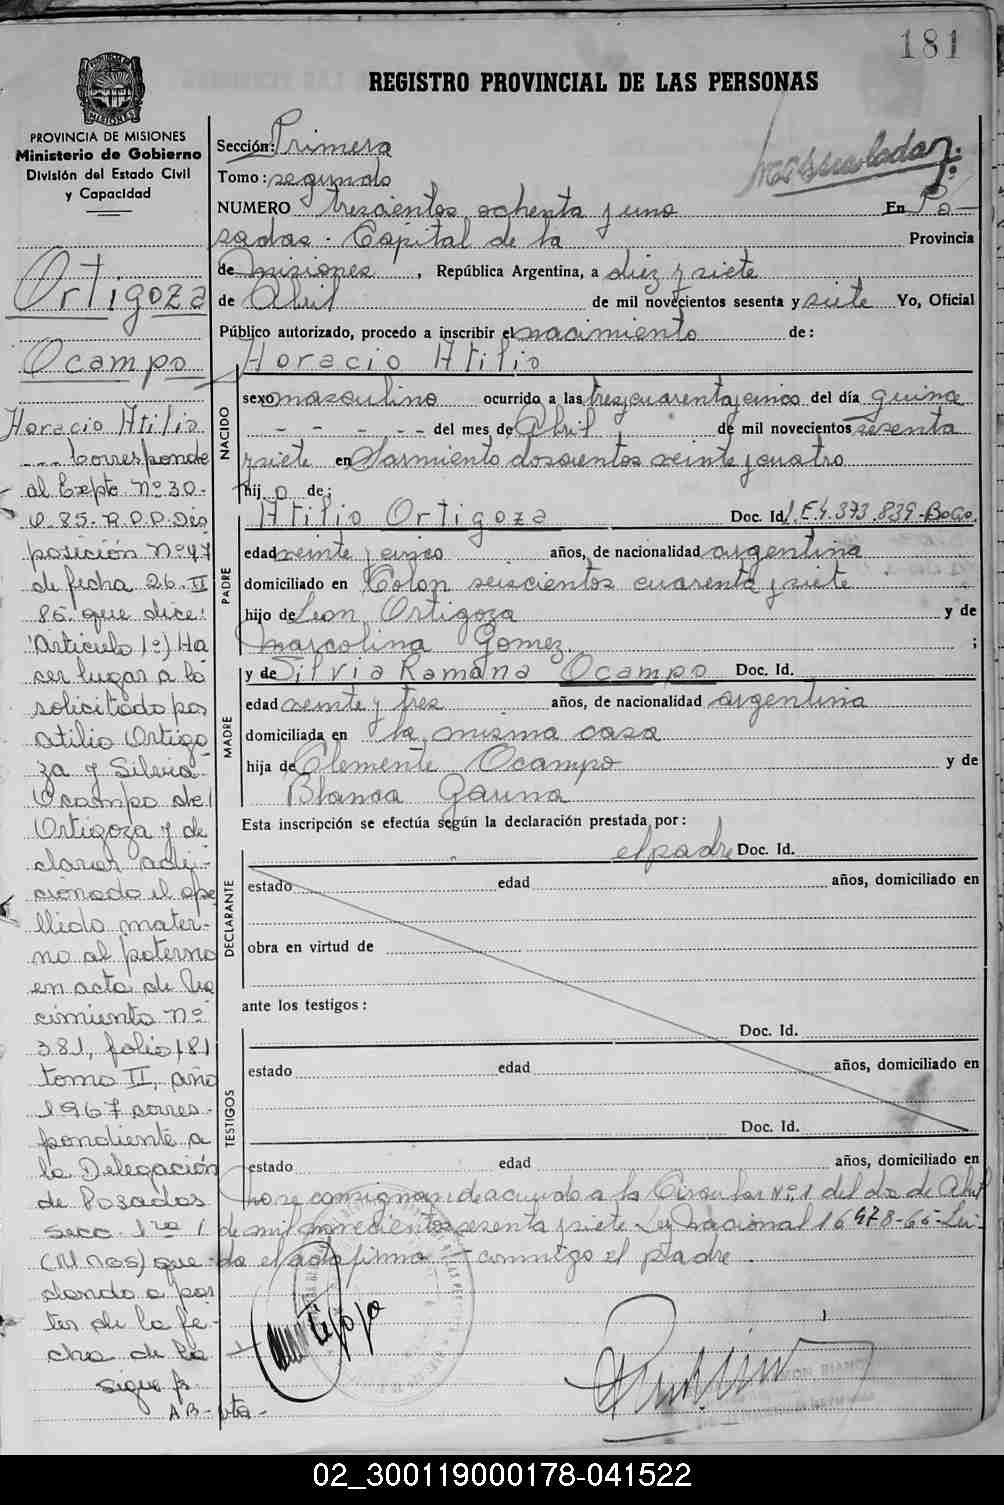 181
REGISTRO PROVINCIAL DE LAS PERSONAS
PROVINCIA DE MISIONES
Ministerio de Gobierno
División del Estado Civil
y Capacidad
Ortigoza
Ocampo
Horacio Atilio
--- Corresponde
al Expte Nº 30-
O-85-R.P.P. Dis
posición Nº 47
de fecha 26-II
85 que dice:
"Artículo 1º) Ha
cer lugar a lo
solicitado por
Atilio Ortigo
za y Silvia
Ocampo de
Ortigoza y de
clarar adi-
cionado el ape
llido mater-
no al paterno
en acta de Na
cimiento Nº
381, folio 181
tomo II, año
1967 corres-
pondiente a
la Delegación
de Posadas
Secc. 1ra
(Mnes) que-
dando a par
tir de la fe-
cha de la
sigue
Sección: Primera
Tomo: segundo
NUMERO trescientos ochenta y uno En Po-
sadas - Capital de la Provincia
de Misiones, República Argentina, a diez y siete
de Abril de mil novecientos sesenta y siete Yo, Oficial
Público autorizado, procedo a inscribir el nacimiento de:
Horacio Atilio
NACIDO
sexo masculino ocurrido a las tres y cuarenta y cinco del día quince
- - - - - del mes de Abril de mil novecientos sesenta
y siete en Sarmiento doscientos veinte y cuatro
hijo de:
PADRE
Atilio Ortigoza Doc. Id. L.E 4.373.839-
edad veinte y cinco años, de nacionalidad argentina
domiciliado en Colon seiscientos cuarenta y siete
hijo de Leon Ortigoza y de
Marcolina Gomez ;
MADRE
y de Silvia Ramona Ocampo Doc. Id.
edad veinte y tres años, de nacionalidad argentina
domiciliada en la misma casa
hija de Clemente Ocampo y de
Blanca Gauna
Esta inscripción se efectúa según la declaración prestada por:
el padre Doc. Id.
DECLARANTE
estado edad años, domiciliado en
obra en virtud de
ante los testigos:
TESTIGOS
Doc. Id.
estado edad años, domiciliado en
Doc. Id.
estado edad años, domiciliado en
no se consignan de acuerdo a la Circular Nº 1 del dos de Abril
de mil novecientos sesenta y siete - Ley Nacional 16478-65- Leí-
do el acta firma conmigo el padre.
02_300119000178-041522